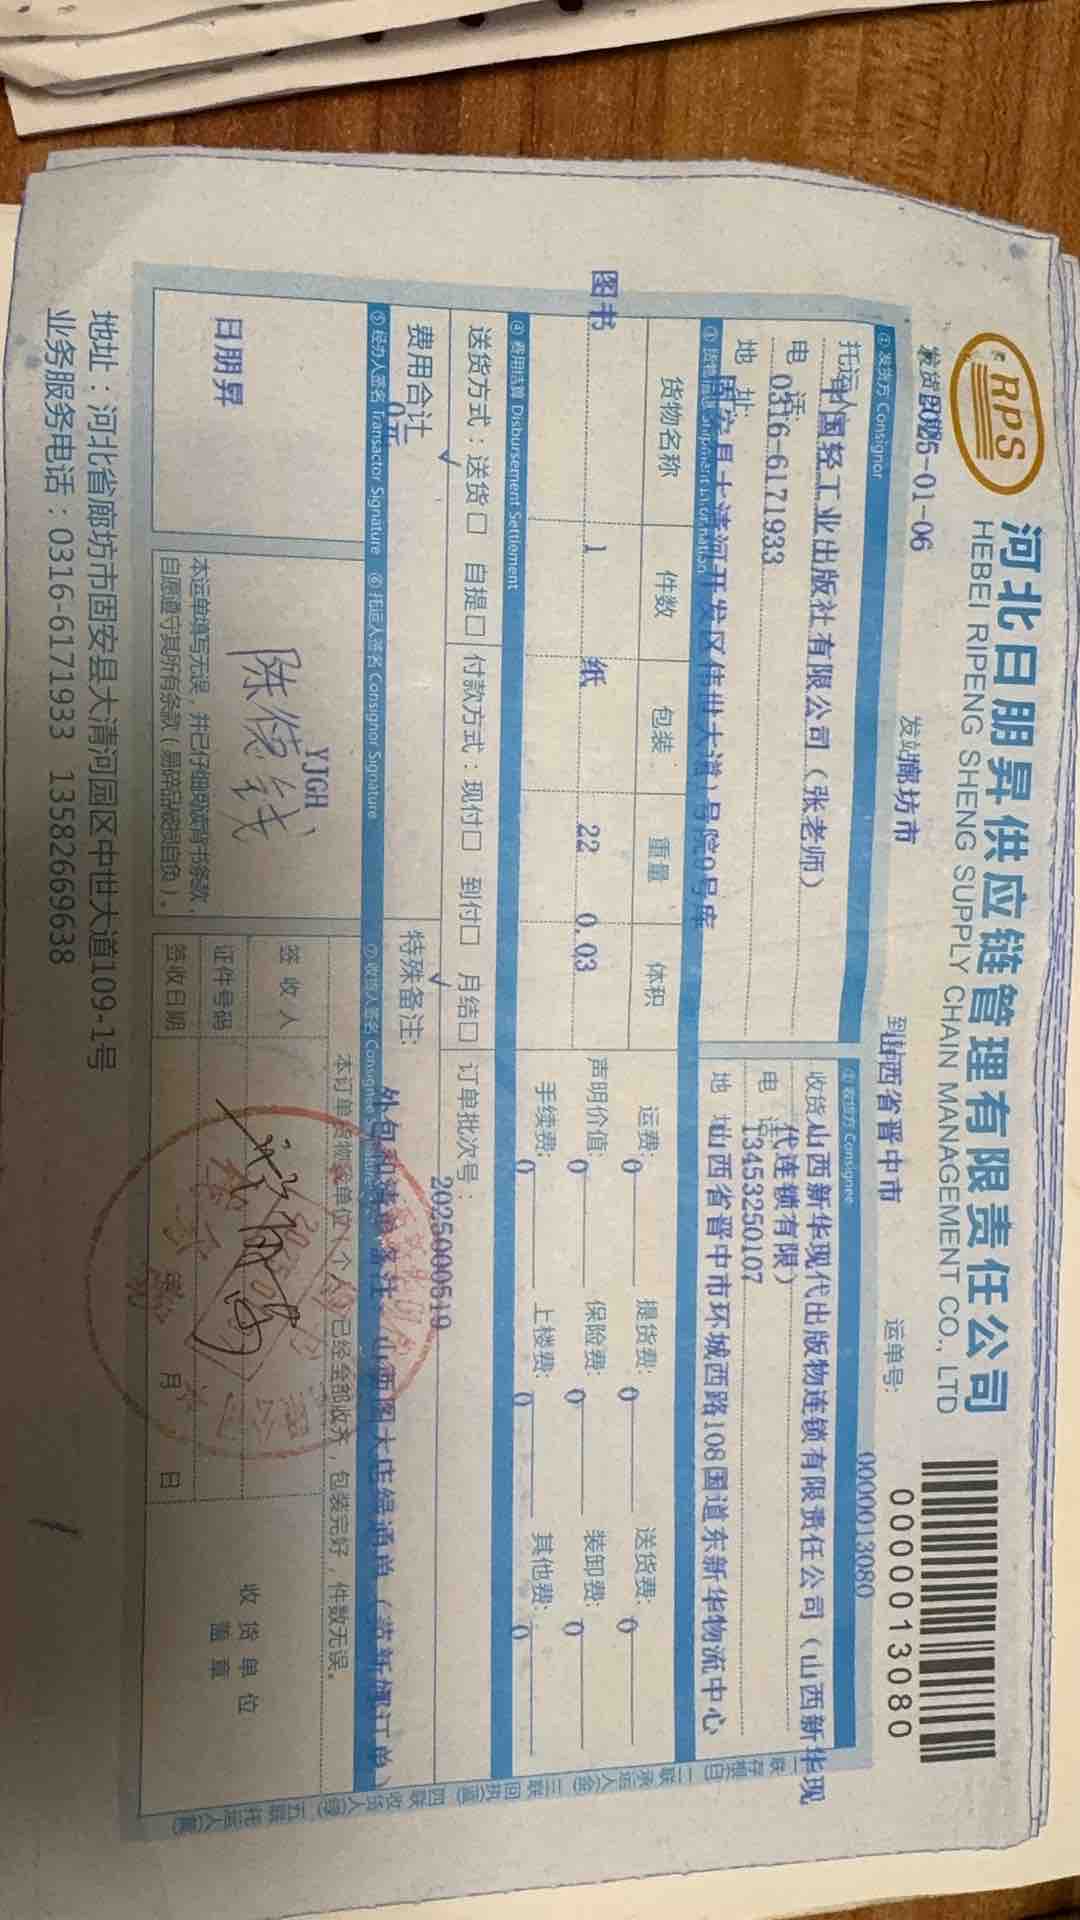 RPS
河北日朋昇供应链管理有限责任公司
HEBEI RIPENG SHENG SUPPLY CHAIN MANAGEMENT CO., LTD
0000013080
2025-01-06
发站: 廊坊市
到站: 山西省晋中市
运单号:
0000013080
① 发货方 Consignor
托运人 中国轻工业出版社有限公司（张老师）
电 话: 0316-6171933
地 址: 固安县大清河开发区伟世大道1号院9号库
② 收货方 Consignee
收货人 山西新华现代出版物连锁有限责任公司（山西新华现
代连锁有限）
电 话 13453250107
地 址 山西省晋中市环城西路108国道东新华物流中心
③ 货物信息 Shipment Information
货物名称 件数 包装 重量 体积
图书 1 纸 22 0.03
运费: 0 提货费: 0 送货费: 0
声明价值: 0 保险费: 0 装卸费: 0
手续费: 0 上楼费: 0 其他费: 0
④ 费用结算 Disbursement Settlement
送货方式：送货□ 自提□ 付款方式：现付□ 到付□ 月结□ 订单批次号：
2025000519
费用合计
0元
特殊备注:
外包和清单备注：山西图大店
⑤ 经办人签名 Transactor Signature ⑥ 托运人签名 Consignor Signature ⑦ 收货人签名 Consignee Signature
日朋昇
YJGH
本运单填写无误，并已仔细阅读背书条款，
自愿遵守其所有条款（易碎品破损自负）。
本订单货物我单位/个人已经全部收齐，包装完好，件数无误。
签 收 人
证件号码
签收日期 年 月 日
收货单位
盖 章
地址：河北省廊坊市固安县大清河园区中世大道109-1号
业务服务电话：0316-6171933 13582669638